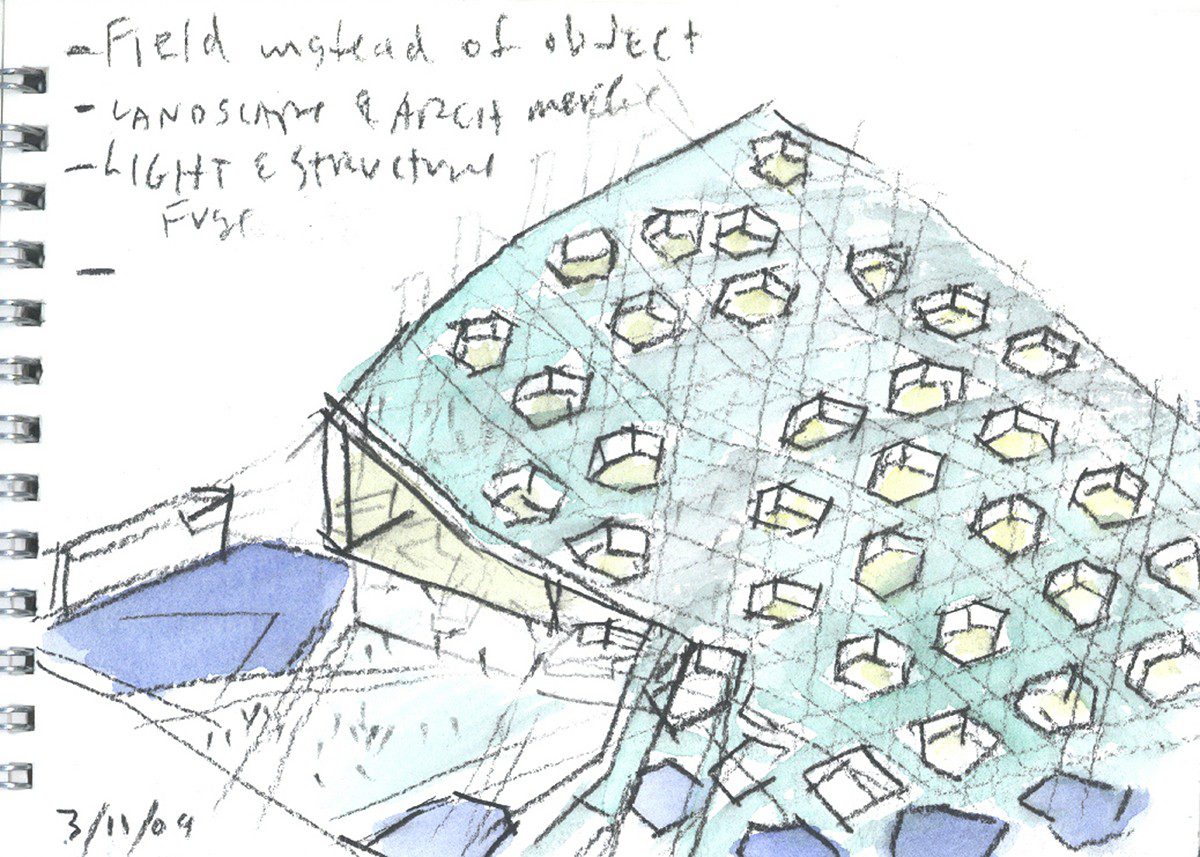 - Field instead of object
- LANDSCAPE & ARCH merge
- LIGHT & Structure
FUSE
-
3/11/09